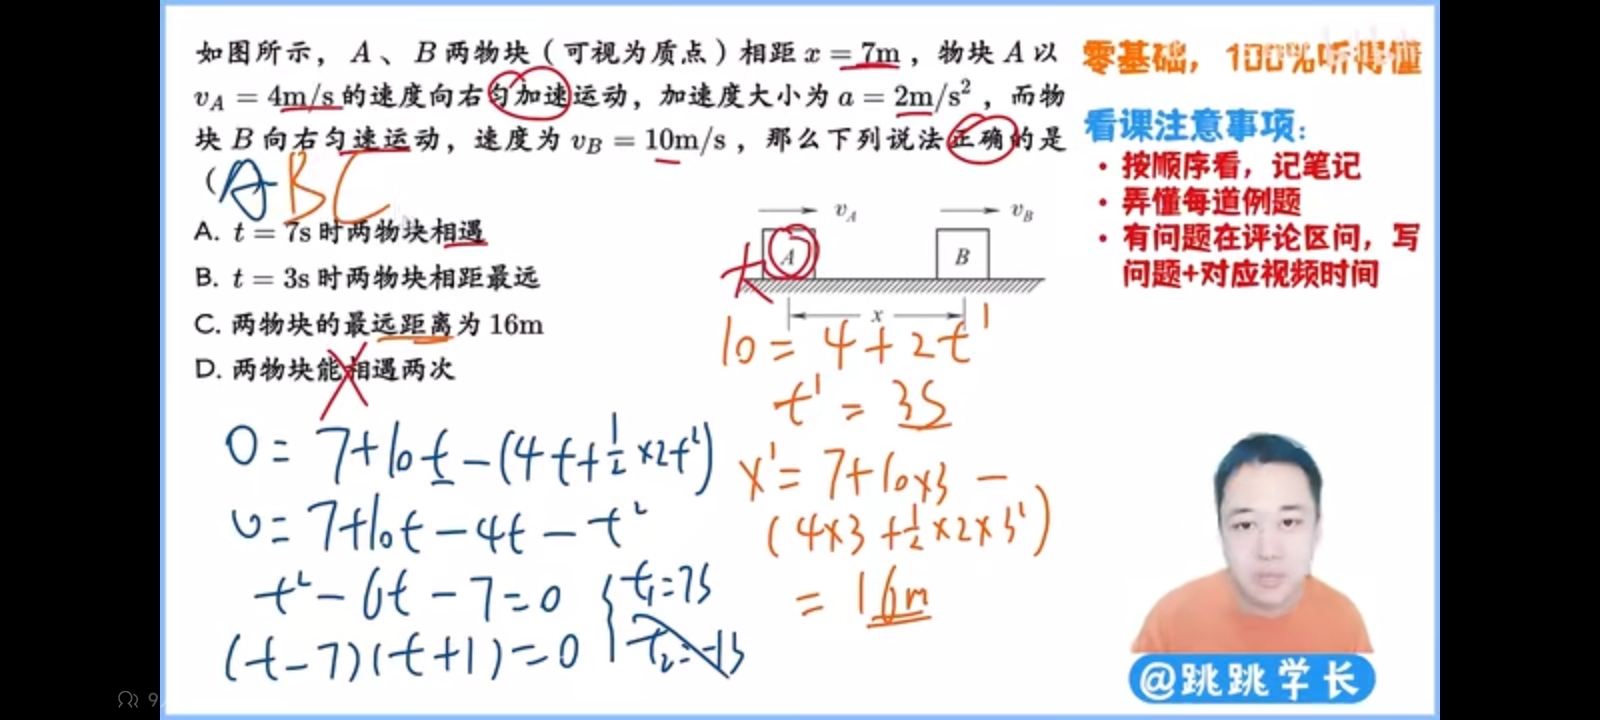 如图所示，A、B两物块（可视为质点）相距 x = 7m，物块 A 以
v_A = 4m/s 的速度向右匀加速运动，加速度大小为 a = 2m/s²，而物
块 B 向右匀速运动，速度为 v_B = 10m/s，那么下列说法正确的是
（ABC
A. t = 7s 时两物块相遇
B. t = 3s 时两物块相距最远
C. 两物块的最远距离为 16m
D. 两物块能相遇两次
v_A
v_B
A
B
x
0 = 7+10t-(4t+½×2t²)
0 = 7+10t-4t-t²
t²-6t-7=0
(t-7)(t+1)=0
t₁=7s
t₂=-1s
10 = 4+2t'
t' = 3s
x' = 7+10×3-
(4×3+½×2×3²)
= 16m
零基础，100%听得懂
看课注意事项：
• 按顺序看，记笔记
• 弄懂每道例题
• 有问题在评论区问，写
问题+对应视频时间
@跳跳学长
9